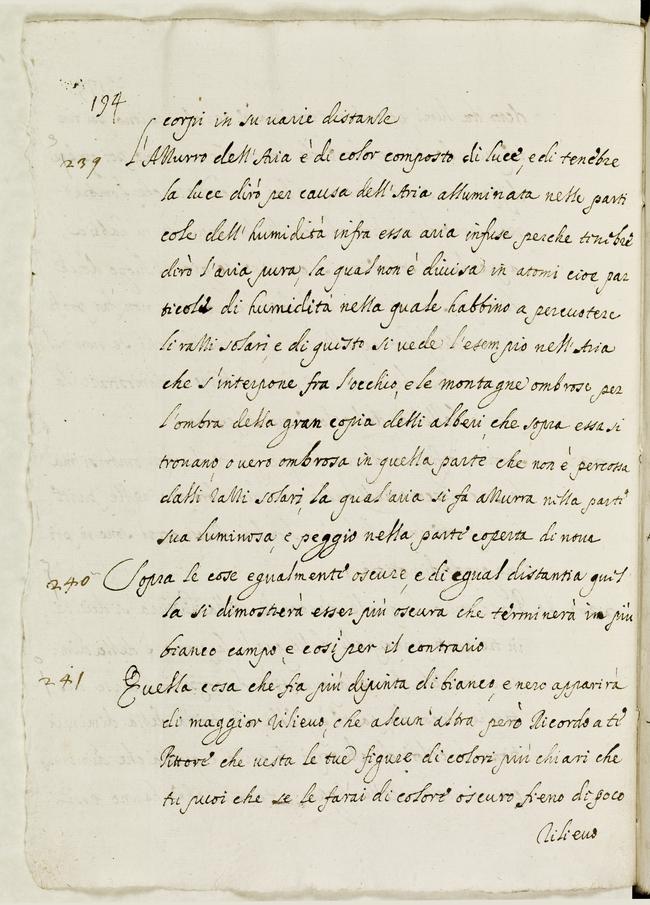 194
corpi in su varie distanze
239 L'Azzurro dell'Aria è di color composto di luce, e di tenebre
la luce dirò per causa dell'Aria alluminata nelle parti
cole dell'humidità infra essa aria infuse perche tenebre
dirò l'aria pura, la qual non è divisa in atomi cioe par
ticole di humidità nella quale habbino a percuotere
li razzi solari, e di questo si vede l'esempio nell'Aria
che s'interpone fra l'occhio, e le montagne ombrose per
l'ombra della gran copia delli alberi, che sopra essa si
trovano, overo ombrosa in quella parte che non è percossa
dalli razzi solari, la qual'aria si fa azzurra nella parte
sua luminosa, e peggio nella parte coperta di nova
240 Sopra le cose egualmente oscure, e di egual distantia quel
la si dimostrerà esser più oscura che terminerà in più
bianco campo, e così per il contrario
241 Quella cosa che fia più dipinta di bianco, e nero apparirà
di maggior rilievo, che alcun'altra però Ricordo a te
Pittore che vesta le tue figure di colori più chiari che
tu puoi che se le farai di colore oscuro fieno di poco
rilievo